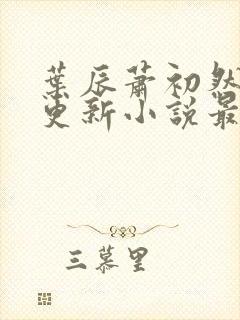 葉辰蕭初然
更新小說最
三慕里